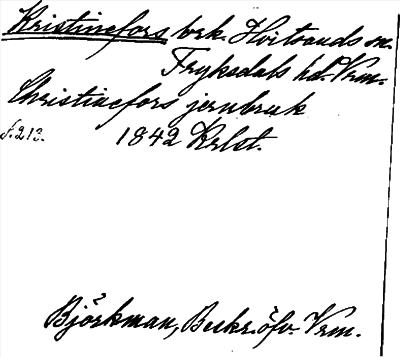 Kristinefors brk. Hvitsands sn.
Fryksdals hd. Vrm.
Christinefors jernbruk
s. 213. 1842 Krlst.
Björkman, Beskr. öfv. Vrm.